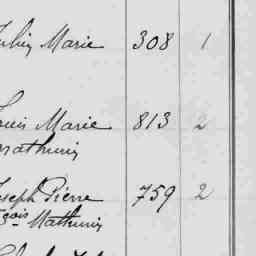 Marie 308 1
Louis Marie 813 2
Mathurin
Joseph Pierre 759 2
çois Mathurin